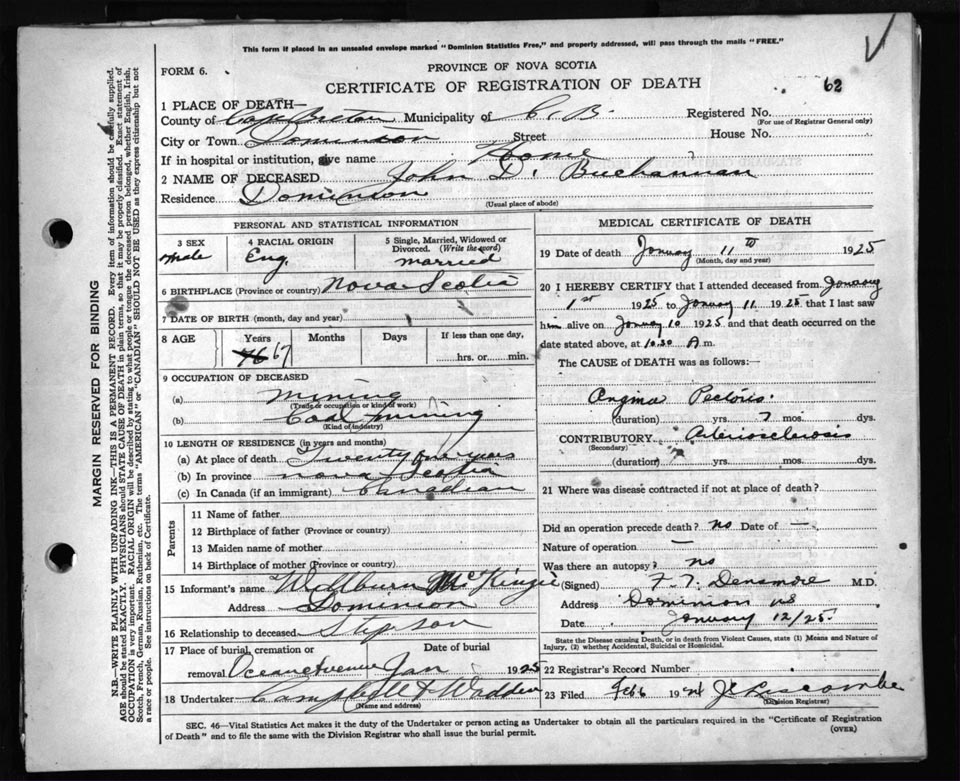 This form if placed in an unsealed envelope marked "Dominion Statistics Free," and properly addressed, will pass through the mails "FREE."
FORM 6.
PROVINCE OF NOVA SCOTIA
CERTIFICATE OF REGISTRATION OF DEATH
62
1 PLACE OF DEATH—
County of Cape Breton Municipality of C. B. Registered No.
(For use of Registrar General only)
City or Town Dominion Street House No.
If in hospital or institution, give name Home
2 NAME OF DECEASED John D. Buchannan
Residence Dominion
(Usual place of abode)
PERSONAL AND STATISTICAL INFORMATION
3 SEX 4 RACIAL ORIGIN 5 Single, Married, Widowed or Divorced. (Write the word)
Male Eng. married
6 BIRTHPLACE (Province or country) Nova Scotia
7 DATE OF BIRTH (month, day and year)
8 AGE Years Months Days If less than one day,
67 hrs. or min.
9 OCCUPATION OF DECEASED
(a) Mining
(Trade or occupation or kind of work)
(b) Coal mining
(Kind of industry)
10 LENGTH OF RESIDENCE (in years and months)
(a) At place of death Twenty five years
(b) In province Nova Scotia
(c) In Canada (if an immigrant) Canadian
Parents
11 Name of father
12 Birthplace of father (Province or country)
13 Maiden name of mother
14 Birthplace of mother (Province or country)
15 Informant's name Willburn McKinzie
Address Dominion
16 Relationship to deceased Stepson
17 Place of burial, cremation or Date of burial
removal Ocean Avenue Jan 1925
18 Undertaker Campbell & Wadden
(Name and address)
MEDICAL CERTIFICATE OF DEATH
19 Date of death January 11th 1925
(Month, day and year)
20 I HEREBY CERTIFY that I attended deceased from January
1st 1925 to January 11 1925 that I last saw
him alive on January 10 1925 and that death occurred on the
date stated above, at 10.30 A m.
The CAUSE of DEATH was as follows:—
Angina Pectoris.
(duration) yrs. 7 mos. dys.
CONTRIBUTORY Arteriosclerosis
(Secondary)
(duration) yrs. mos. dys.
21 Where was disease contracted if not at place of death?
Did an operation precede death? no Date of —
Nature of operation —
Was there an autopsy? no
(Signed) F. T. Densmore M.D.
Address Dominion NS
Date January 12/25.
State the Disease causing Death, or in death from Violent Causes, state (1) Means and Nature of
Injury, (2) whether Accidental, Suicidal or Homicidal.
22 Registrar's Record Number
23 Filed Feb 6
(Division Registrar)
SEC. 46—Vital Statistics Act makes it the duty of the Undertaker or person acting as Undertaker to obtain all the particulars required in the "Certificate of Registration
of Death" and to file the same with the Division Registrar who shall issue the burial permit.
(OVER)
MARGIN RESERVED FOR BINDING
N.B.—WRITE PLAINLY WITH UNFADING INK—THIS IS A PERMANENT RECORD. Every item of information should be carefully supplied.
AGE should be stated EXACTLY. PHYSICIANS should STATE CAUSE OF DEATH in plain terms, so that it may be properly classified. Exact statement of
OCCUPATION is very important. RACIAL ORIGIN will be described by stating to what people or tongue the deceased person belonged, whether English, Irish,
Scotch, French, German, Russian, Ruthenian, etc. The terms "AMERICAN" or "CANADIAN" SHOULD NOT BE USED as they express citizenship but not
a race or people. See instructions on back of Certificate.